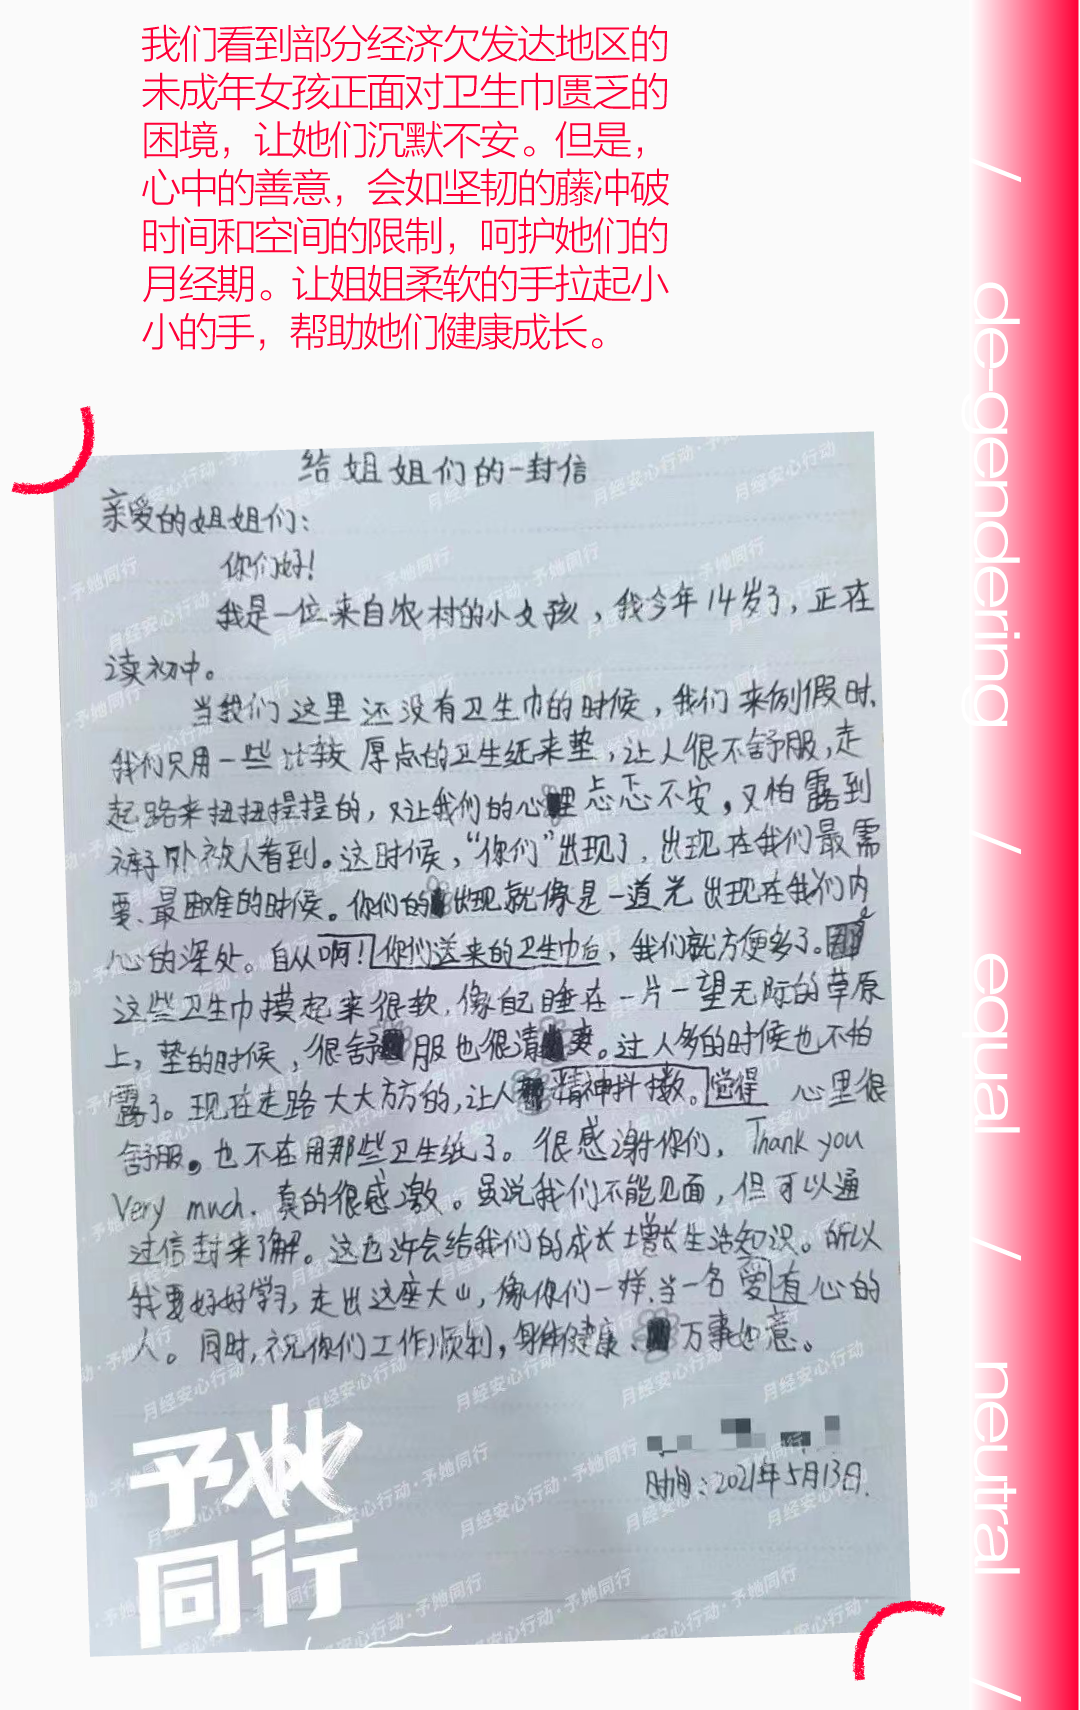 我们看到部分经济欠发达地区的
未成年女孩正面对卫生巾匮乏的
困境，让她们沉默不安。但是，
心中的善意，会如坚韧的藤冲破
时间和空间的限制，呵护她们的
月经期。让姐姐柔软的手拉起小
小的手，帮助她们健康成长。
/ de-gendering / equal / neutral /
给姐姐们的一封信
亲爱的姐姐们：
你们好！
我是一位来自农村的小女孩，我今年14岁了，正在
读初中。
当我们这里还没有卫生巾的时候，我们来例假时、
我们只用一些比较厚点的卫生纸来垫，让人很不舒服，走
起路来扭扭捏捏的，又让我们的心里忐忑不安，又怕露到
裤子外被人看到。这时候，“你们”出现了，出现在我们最需
要、最困难的时候。你们的出现就像是一道光出现在我们内
心的深处。自从啊！你们送来的卫生巾后，我们就方便多了。那
这些卫生巾摸起来很软，像自己睡在一片一望无际的草原
上，垫的时候，很舒服也很清爽。过人多的时候也不怕
露了。现在走路大大方方的，让人精神抖擞。觉得 心里很
舒服。也不在用那些卫生纸了。很感谢你们，Thank you
Very much. 真的很感激。虽说我们不能见面，但可以通
过信封来了解。这也许会给我们的成长增长生活知识。所以
我要好好学习，走出这座大山，像你们一样、当一名爱有心的
人。同时，祝你们工作顺利，身体健康、万事如意。
时间：2021年5月13日.
予她
同行
月经安心行动·予她同行